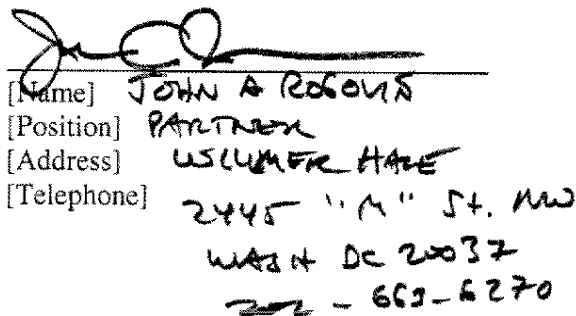 [Name] JOHN A ROGOVIN
[Position] PARTNER
[Address] WILMER HALE
[Telephone]
2445 "M" St. NW
WASH DC 20037
202 - 663-6270